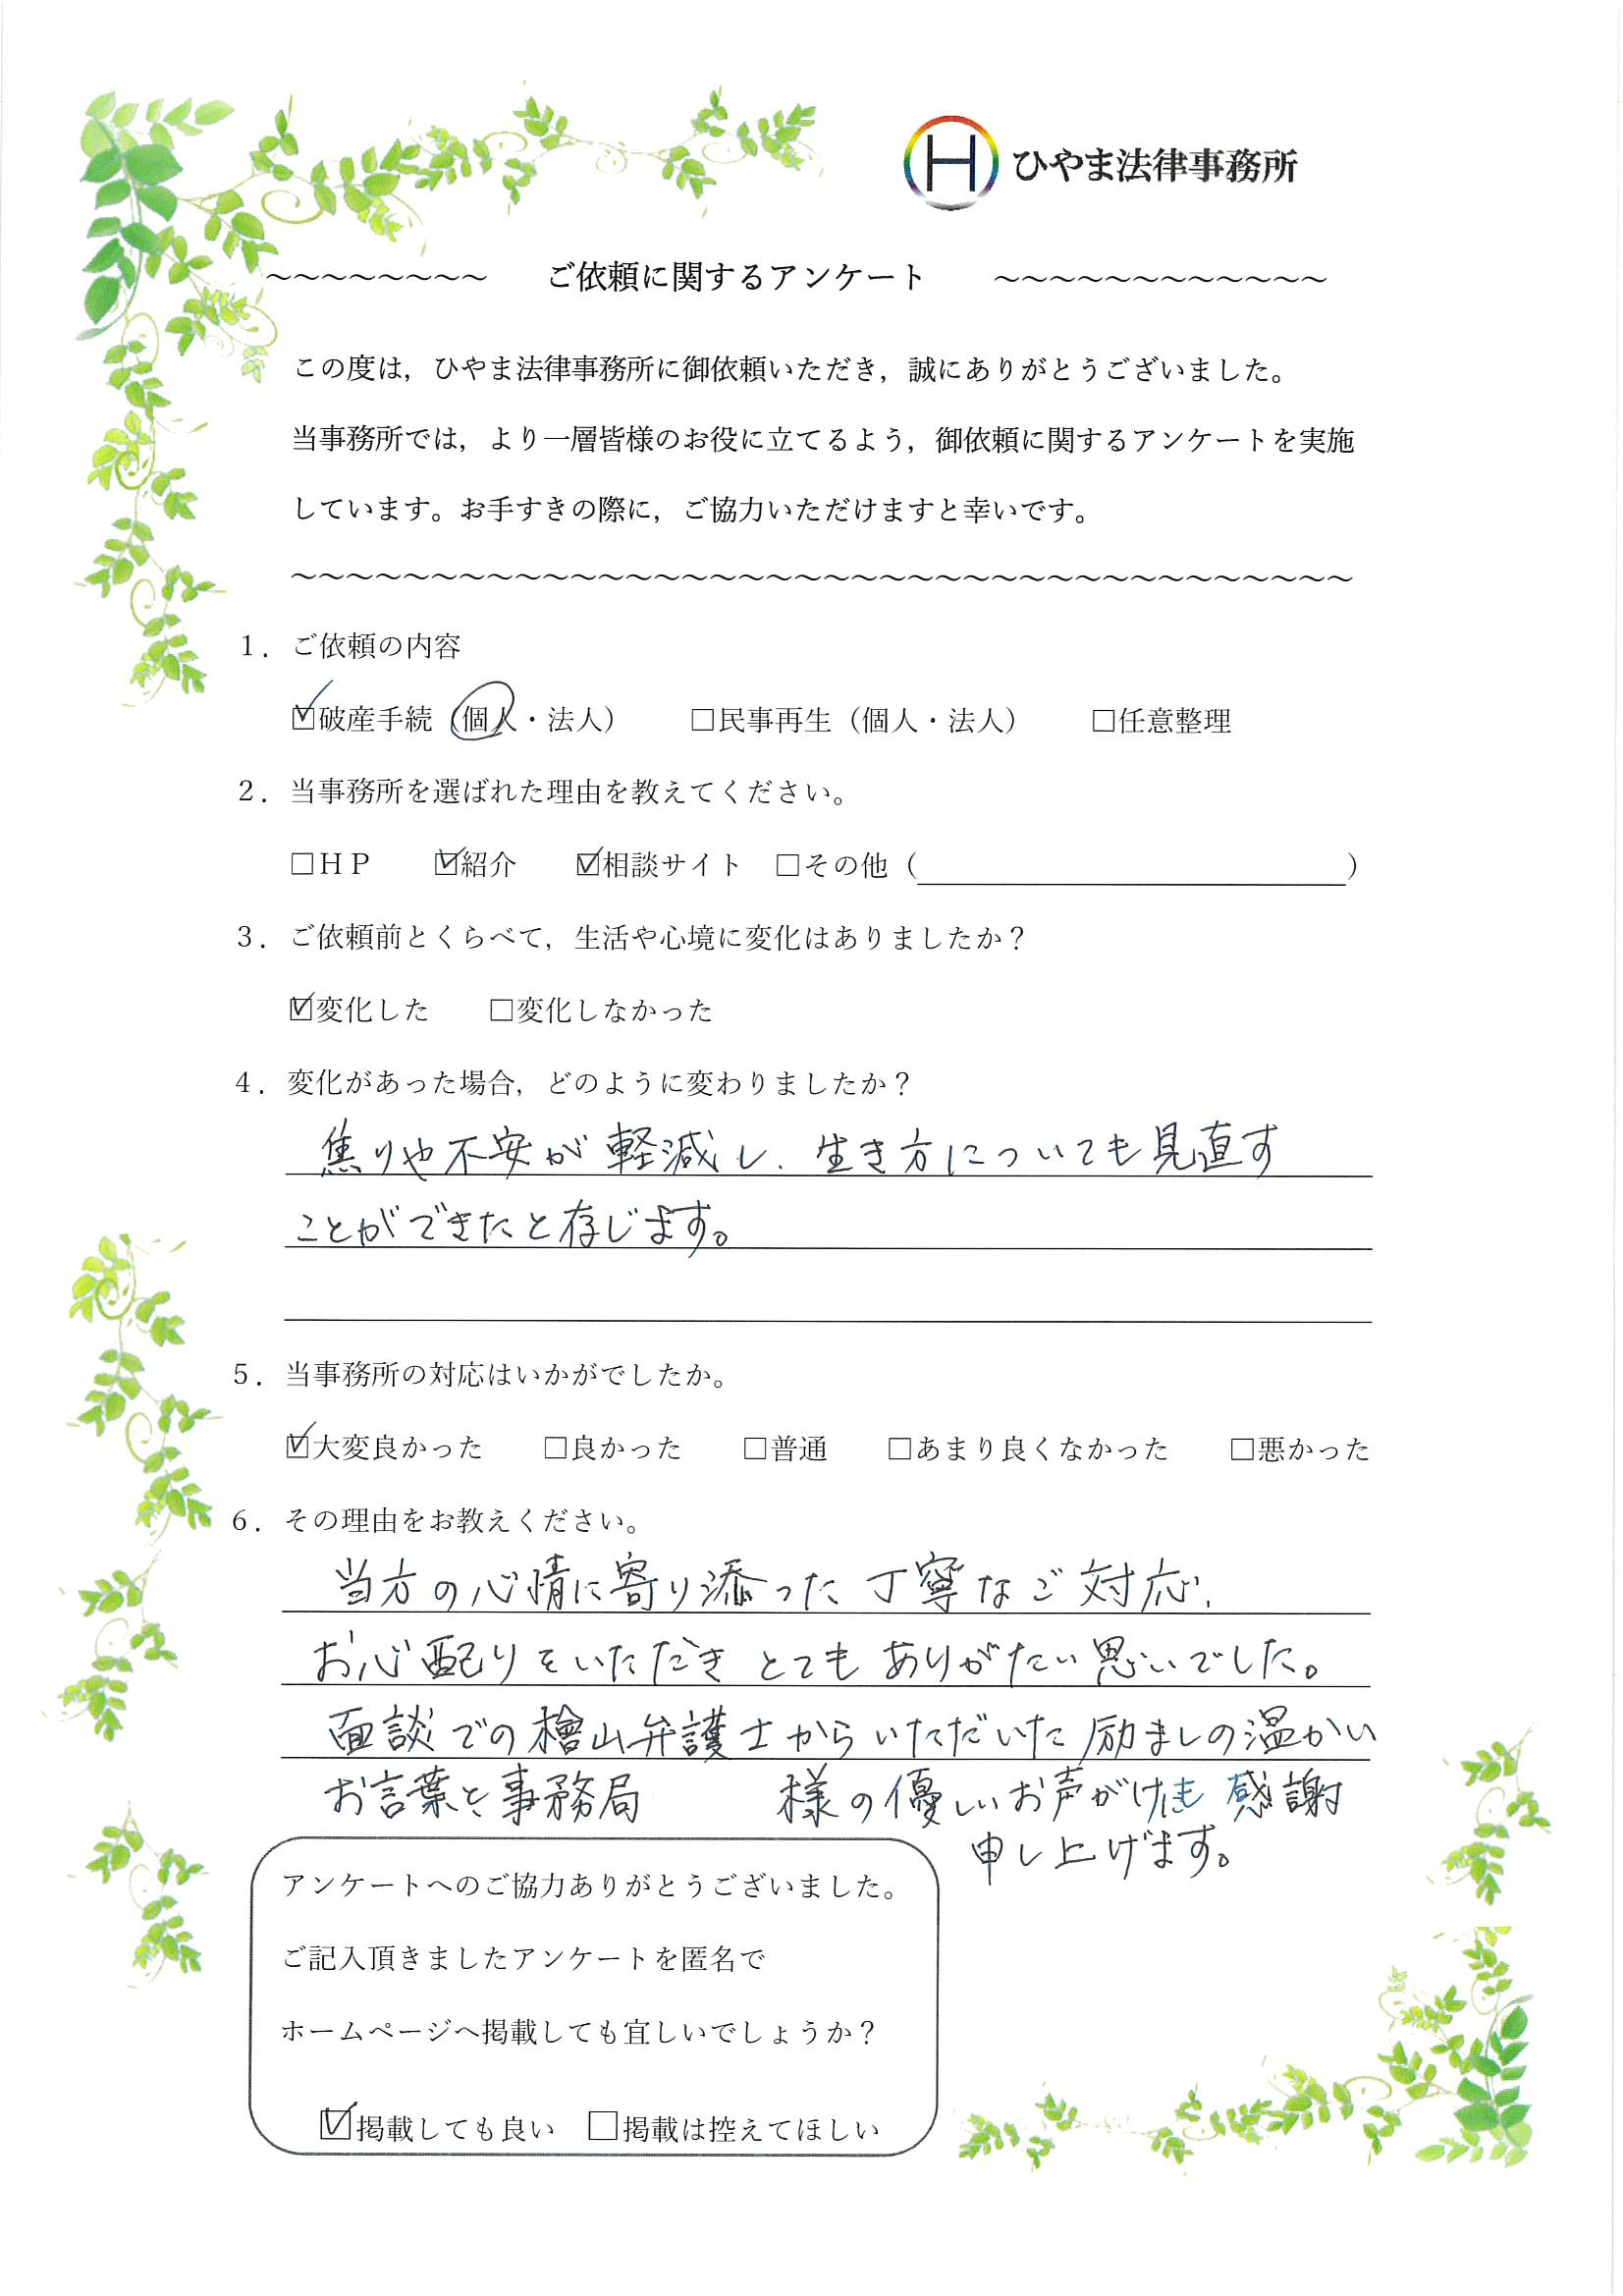 H ひやま法律事務所
～～～～～～～～ ご依頼に関するアンケート ～～～～～～～～～～～～
この度は，ひやま法律事務所に御依頼いただき，誠にありがとうございました。
当事務所では，より一層皆様のお役に立てるよう，御依頼に関するアンケートを実施
しています。お手すきの際に，ご協力いただけますと幸いです。
～～～～～～～～～～～～～～～～～～～～～～～～～～～～～～～～～～～～～～
１．ご依頼の内容
☑破産手続（個人・法人） □民事再生（個人・法人） □任意整理
２．当事務所を選ばれた理由を教えてください。
□ＨＰ ☑紹介 ☑相談サイト □その他（ ）
３．ご依頼前とくらべて，生活や心境に変化はありましたか？
☑変化した □変化しなかった
４．変化があった場合，どのように変わりましたか？
焦りや不安が軽減し、生き方についても見直す
ことができたと存じます。
５．当事務所の対応はいかがでしたか。
☑大変良かった □良かった □普通 □あまり良くなかった □悪かった
６．その理由をお教えください。
当方の心情に寄り添った丁寧なご対応、
お心配りをいただきとてもありがたい思いでした。
面談での檜山弁護士からいただいた励ましの温かい
お言葉と事務局 様の優しいお声がけにも感謝
申し上げます。
アンケートへのご協力ありがとうございました。
ご記入頂きましたアンケートを匿名で
ホームページへ掲載しても宜しいでしょうか？
☑掲載しても良い □掲載は控えてほしい